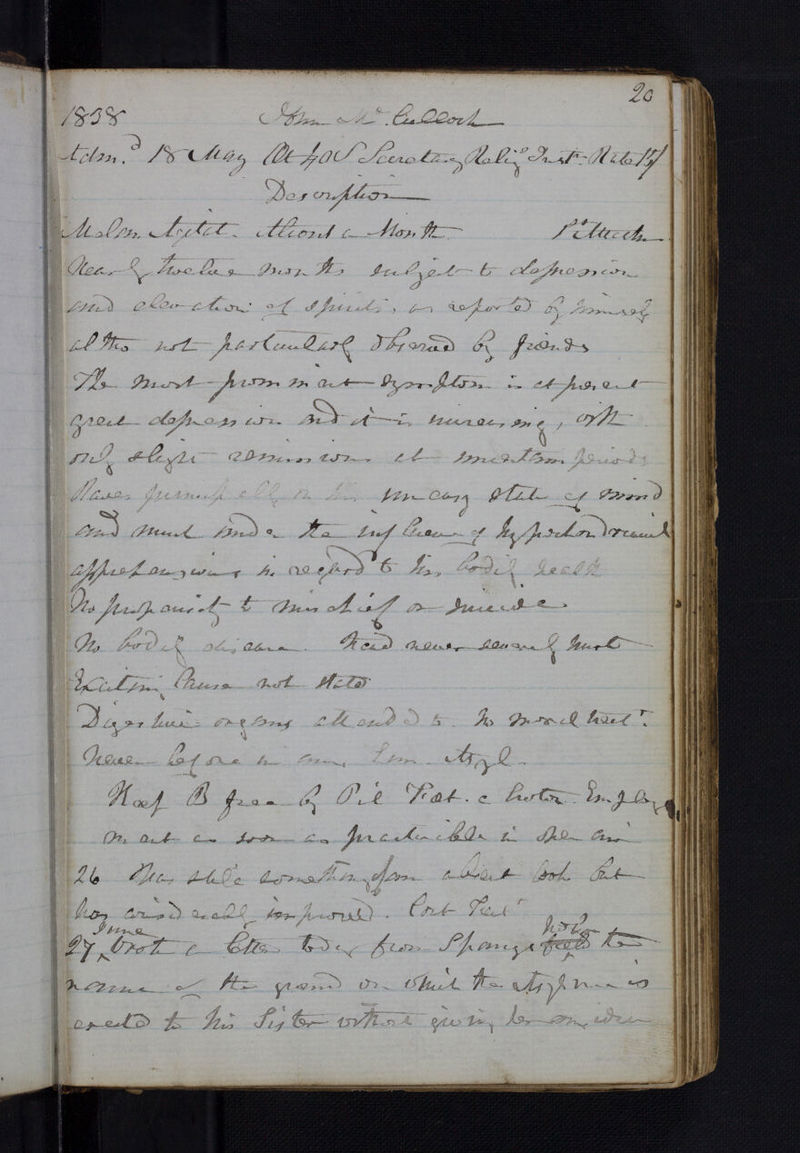 20
1838 John McCulloch
Adm.d 18 May Æt 40 S Secretary Relig.s Inst.n Rate 15/
Description
Melan. Agitat. About a Month
Nearly twelve months subject to depression
and elevation of spirits, as reported by himself
altho not particularly observed by friends
The most prominent symptom is at present
great depression and it is increasing, with
only slight remissions at uncertain periods
Raves principally on his uneasy state of mind
and much under the influence of hypochondriacal
apprehensions in regard to his bodily health
No propensity to mischief or suicide
No bodily disease. Head never severely hurt
Exciting Cause not stated
Digestive organs attended to. No moral treat.t
Never before in any Lun. Asyl.
Keep B free by Pil c Croton. Employ
ment as soon as practicable in open air
26 Has still something of an absent look but
has considerably improved. Cont Treat
27 June wrote a letter today from Springfield the
name of the ground on which the Asylum is
erected to his Sister without giving her any idea